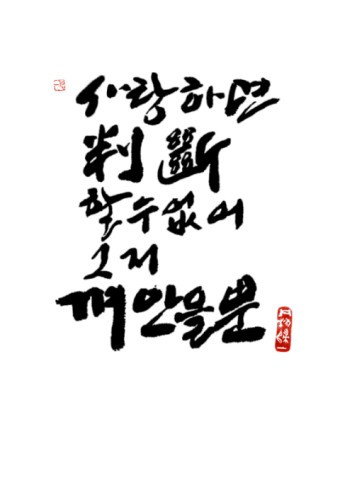 사랑하면
判斷
할 수 없어
그저
껴안을 뿐